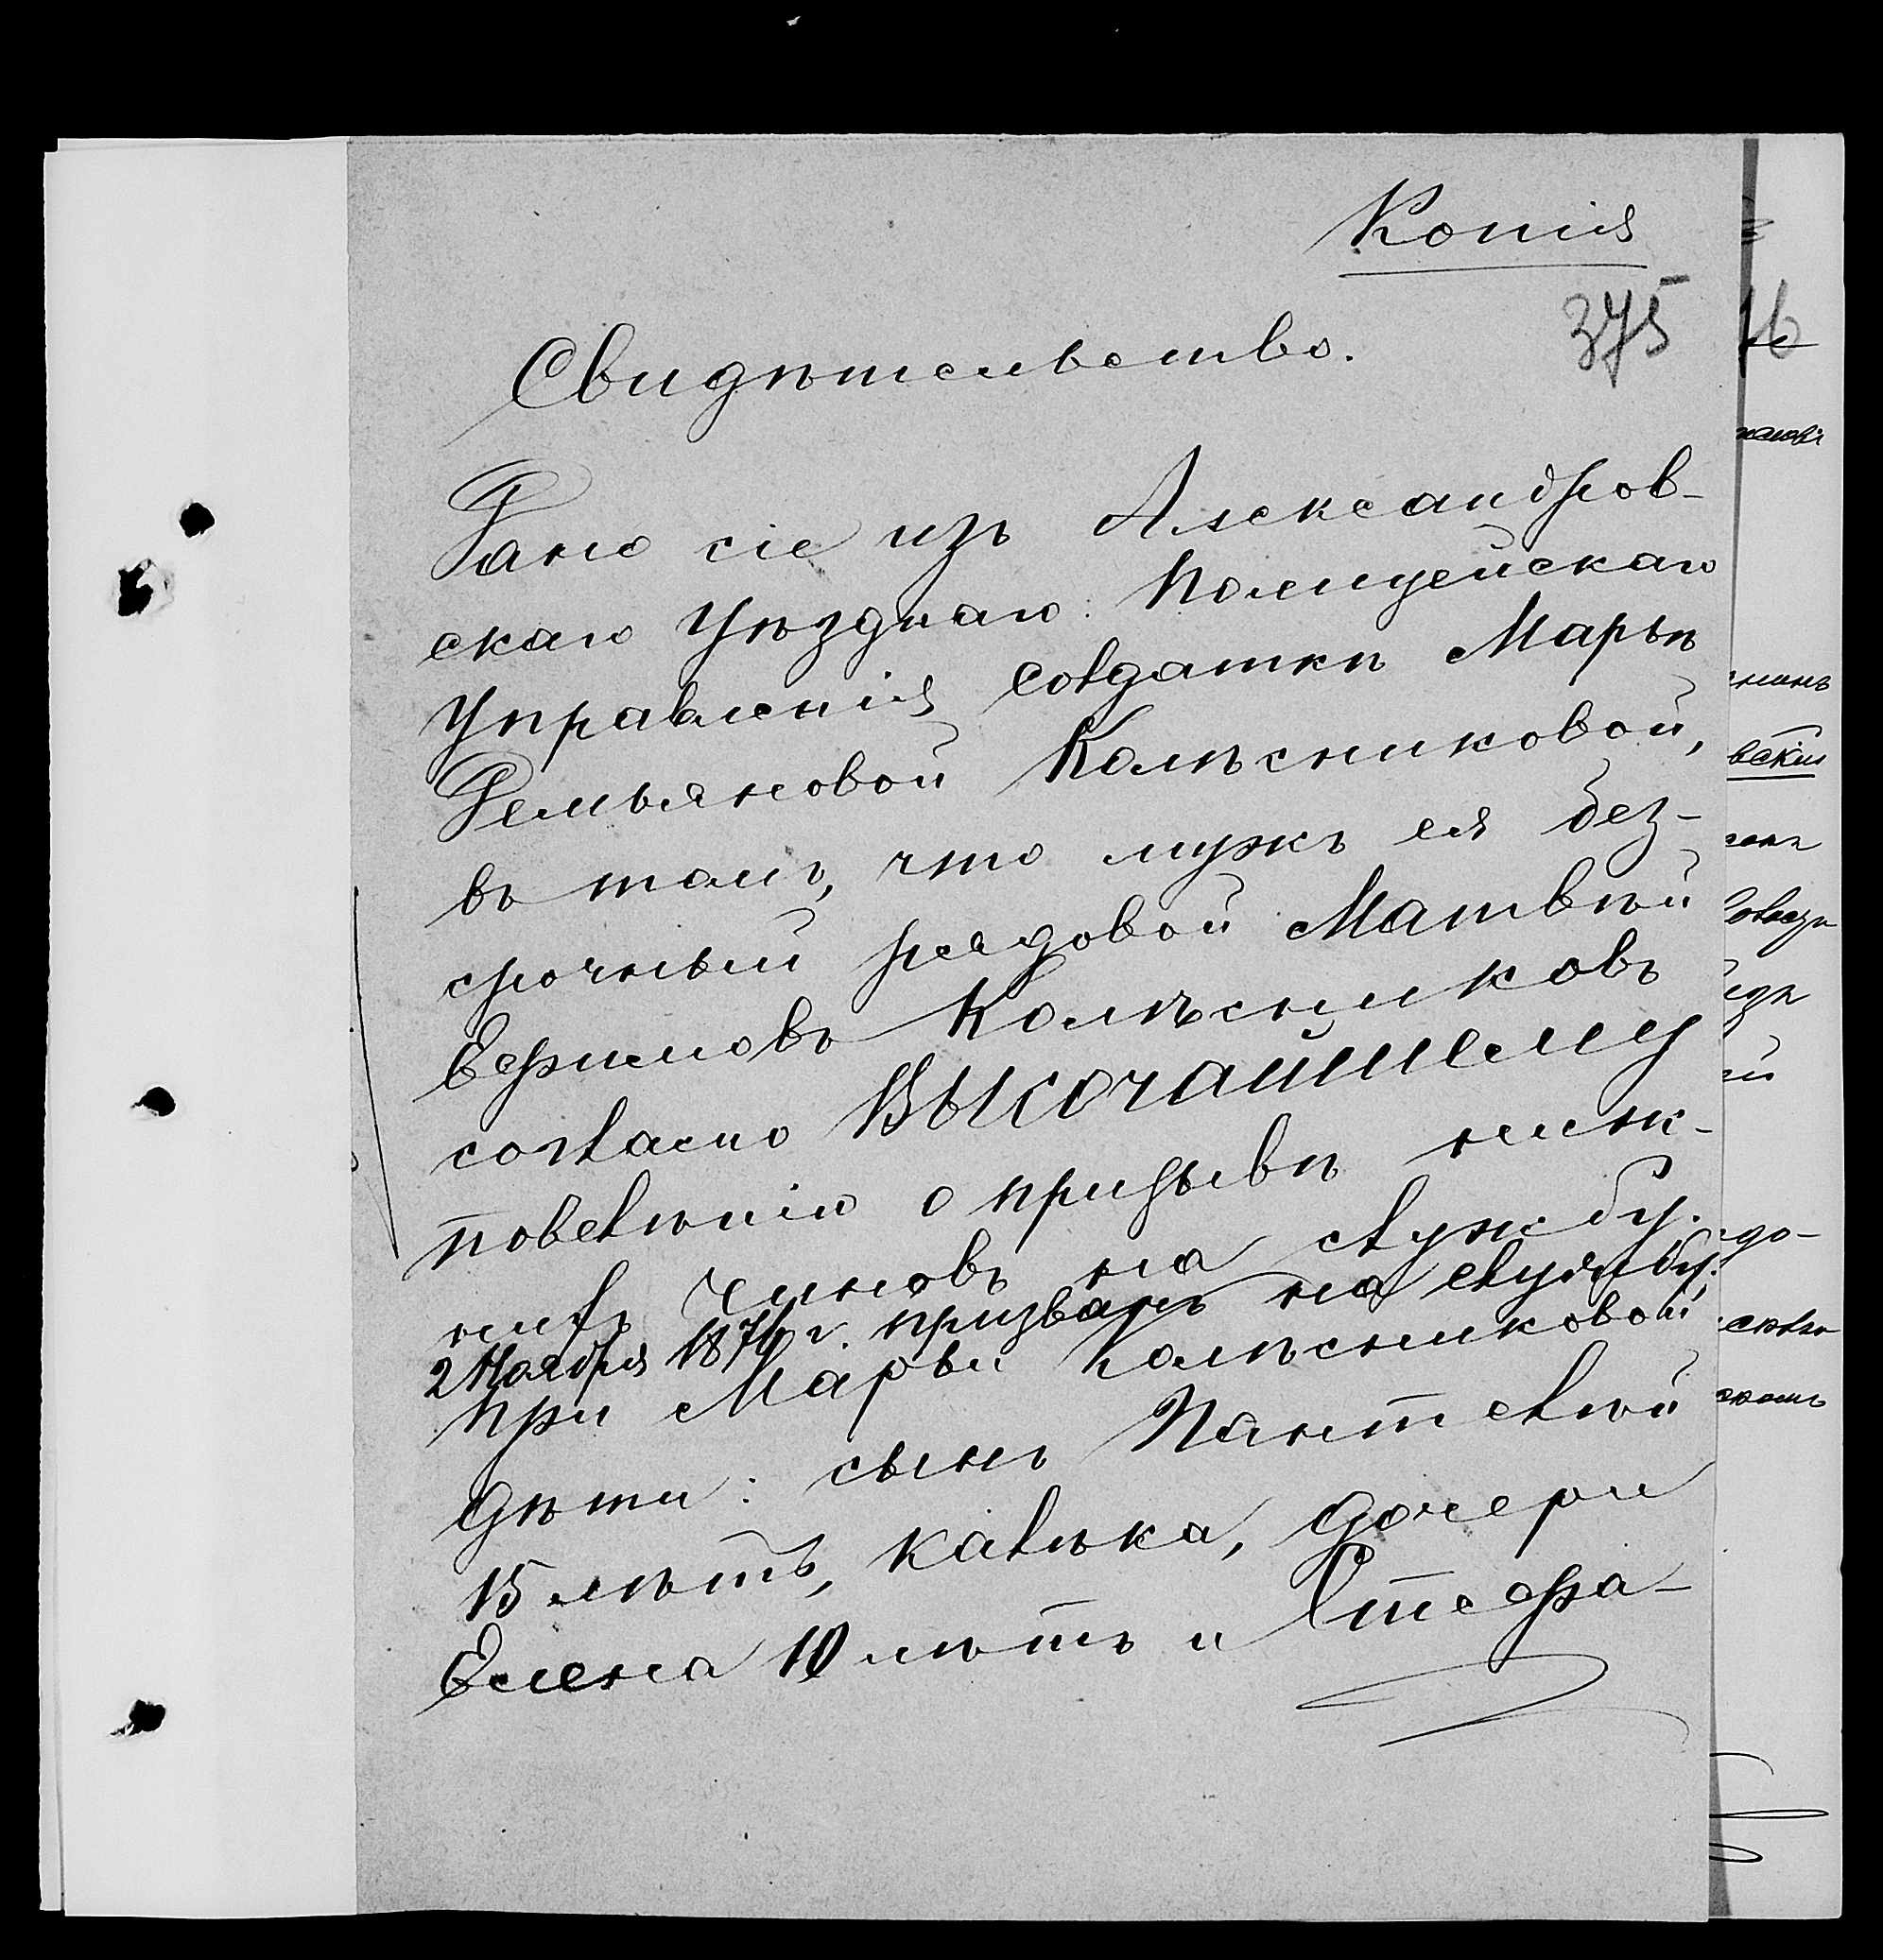 Копія
375
Свидѣтельство.
Дано сіе изъ Александров-
скаго Уѣзднаго Полицейскаго
Управленія солдаткѣ Марьѣ
Демьяновой Колѣсниковой,
въ томъ, что мужъ ея без-
срочный рядовой Матвѣй
Ефимовъ Колѣсниковъ
согласно ВЫСОЧАЙШЕМУ
повелѣнію о призывѣ ниж-
нихъ чиновъ на службу.
2 Ноября 1876 г. призванъ на службу.
при Марьи Колѣсниковой
дѣти: сынъ Пантелѣй
15 лѣтъ, калѣка, дочери
Елена 10 лѣтъ и Стефа-
16